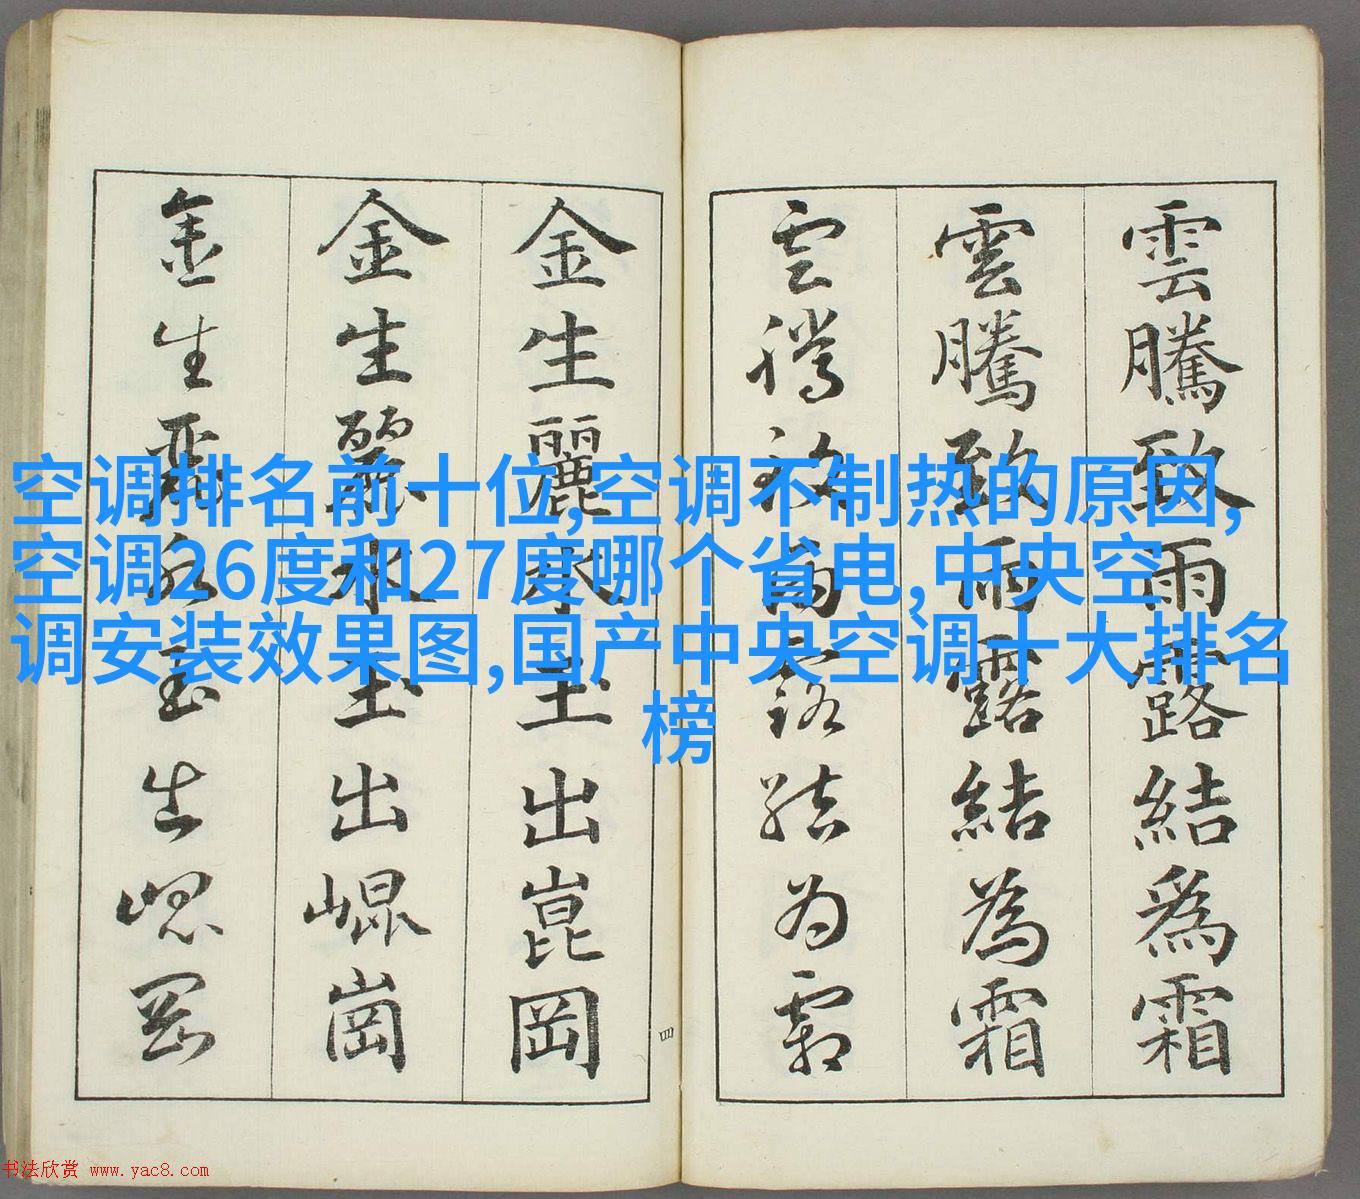 雲騰致雨露結爲霜
雲騰致雨露結為霜
雲騰致雨露結为霜
金生麗水玉出崑岡
金生麗水玉出崐崗
金生麗水玉出崐岡
四
空调排名前十位,空调不制热的原因,
空调26度和27度哪个省电,中央空
调安装效果图,国产中央空调十大排名
榜
书法欣赏 www.yac8.com